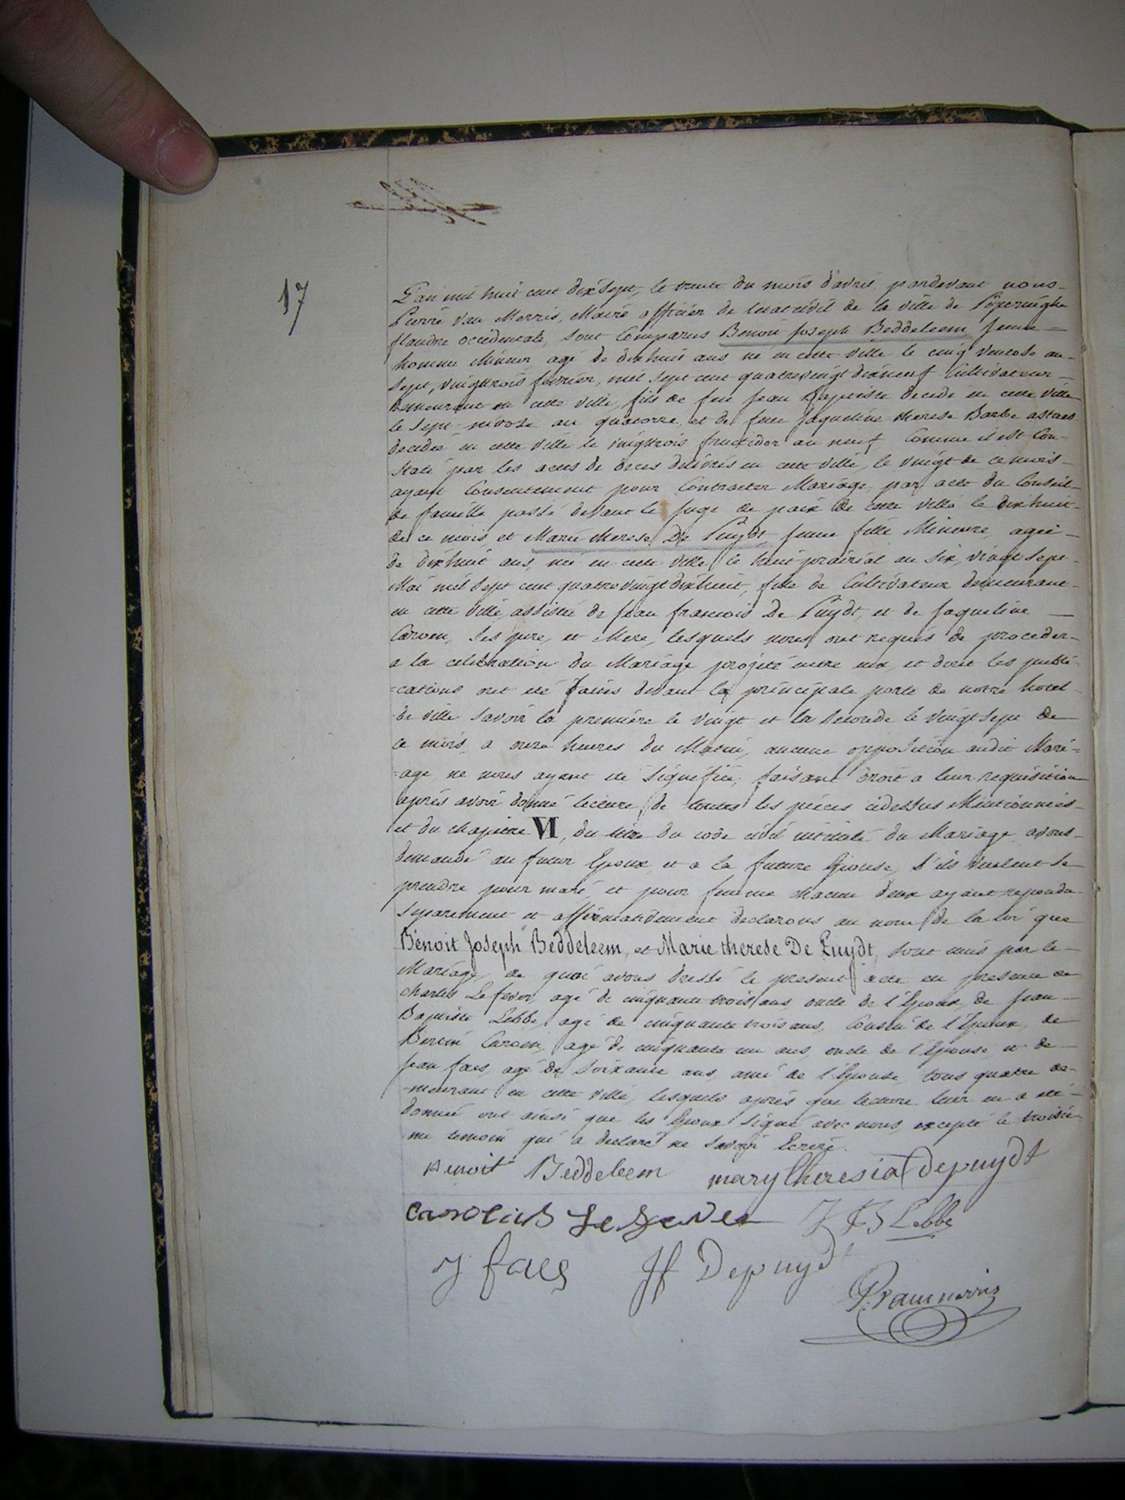 17
L'an mil huit cent dix sept, le trente du mois d'avril pardevant nous
Pierre Van Merris, Maire officier de l'etat civil de la ville de Poperinghe
flandre occidentale, sont Comparus Benoit Joseph Beddeleem jeune
homme Mineur agé de dix huit ans né en cette ville le cinq ventose an
sept, vingt trois fevrier, mil sept cent quatrevingt dix neuf Cultivateur
demeurant en cette ville, fils de feu jean Baptiste decedé en cette ville
le sept nivose an quatorze, et de feue Jaqueline therese Barbe
decedée en cette ville le vingt trois fructidor an neuf Comme il est Con-
staté par les actes de deces delivrés en cette ville, le vingt de ce mois
ayant Consentement pour Contracter Mariage par acte du Conseil
de famille passé devant le Juge de paix de cette ville le dix huit
de ce mois et Marie therese De Puydt jeune fille Mineure, agée
de dix huit ans, née en cette ville le huit prairial an six, vingt sept
Mai mil sept cent quatrevingt dix huit, fille de Cultivateur demeurant
en cette ville, assistée de jean francois De Puydt, et de Jaqueline
Carven, ses pere, et Mere, lesquels nous ont requis de proceder
a la celebration du Mariage projeté entre eux, et dont les publi-
cations ont été faites devant la principale porte de notre hotel
de ville Savoir la premiere le vingt et la Seconde le vingt sept de
ce mois, a onze heures du Matin, aucune opposition audit Mari-
age, ne nous ayant été Signifiée, faisant droit a leur requisition
après avoir donné lecture, de toutes les pièces cidessus Mentionnées
et du chapitre VI, du titre du code civil intitulé du Mariage, avons
demandé au futur Epoux et a la future Epouse, S'ils veulent Se
prendre pour mari et pour femme chacun deux ayant repondu
Separement et affirmativement declarons au nom de la loi que
Bénoit Joseph Beddeleem, et Marie therese De Puydt, sont unis par le
Mariage, de quoi avons dressé le present acte en presence de
Charles Le fever agé de cinquante trois ans, oncle de l'Epoux, de Jean
Baptiste Lebbe, agé de cinquante trois ans, Cousin de l'Epoux, de
Bertin Carven, agé de cinquante un ans, oncle de l'Epouse et de
jean faes agé de Soixante ans, ami de l'Epouse, tous quatre de-
meurant en cette ville, lesquels après que lecture leur en a été
donnée ont ainsi que les Epoux Signé avec nous, excepté le troisiè-
me temoin qui a declaré ne Savoir Ecrire.
Benoit Beddeleem mary theresia depuydt
Carolus Le Fever J B Lebbe
J faes J f Depuydt
P. vanmerris